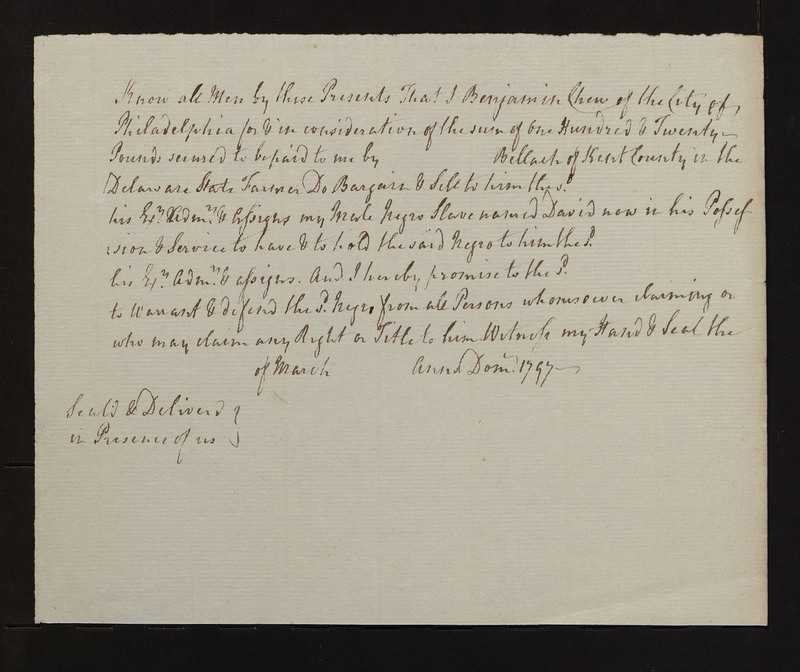 Know all Men by these Presents That I Benjamin Chew of the City of
Philadelphia for & in consideration of the sum of One Hundred & Twenty
Pounds secured to be paid to me by Bellach of Kent County in the
Delaware State Farmer Do Bargain & Sell to him the sd.
his Exrs Admrs & Assigns my Male Negro Slave named David now in his Posses
:sion & Service to have & to hold the said Negro to him the sd.
his Exrs Admrs & assigns. And I hereby promise to the sd.
to Warrant & defend the sd. Negro from all Persons whomsoever claiming or
who may claim any Right or Title to him Witness my Hand & Seal the
of March Anno Domi 1797
Seal'd & Deliverd }
in Presence of us